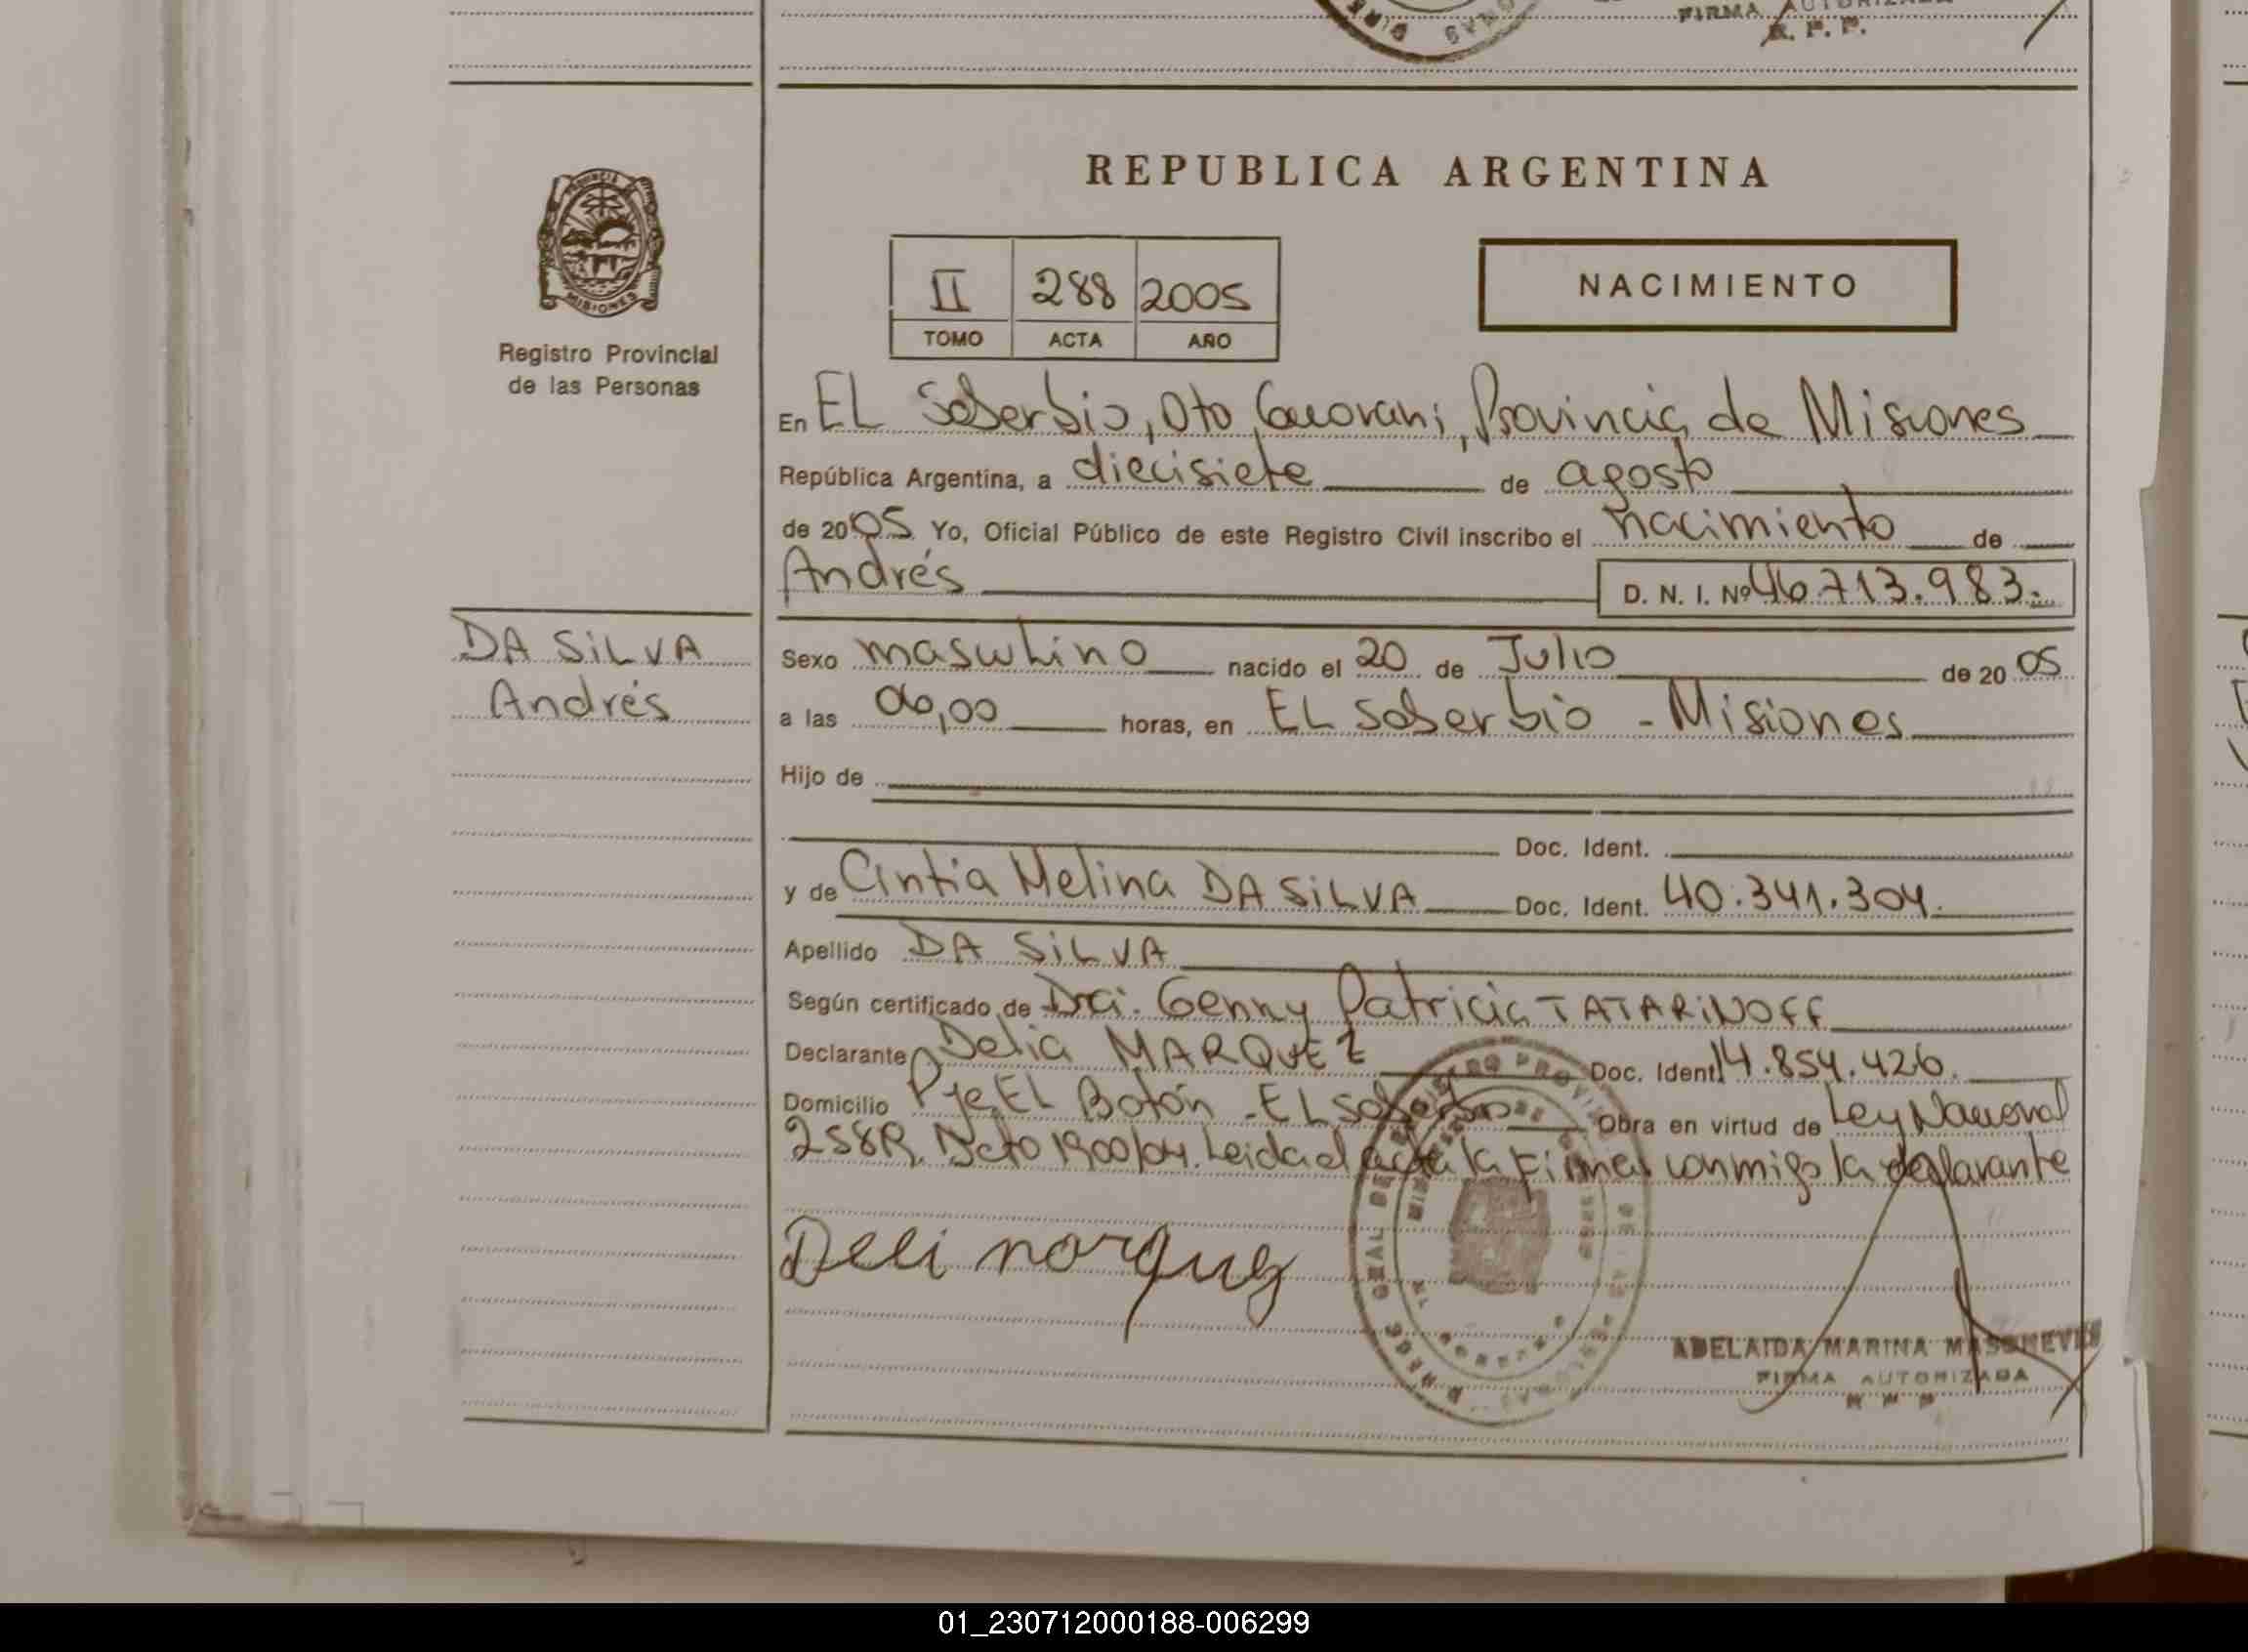 FIRMA AUTORIZADA
R. P. P.
REPUBLICA ARGENTINA
PROVINCIA DE
MISIONES
Registro Provincial
de las Personas
II 288 2005
TOMO ACTA AÑO
NACIMIENTO
En EL Soberbio, Dto Guarani, Provincia de Misiones
República Argentina, a diecisiete de agosto
de 2005 Yo, Oficial Público de este Registro Civil inscribo el nacimiento de
Andrés D. N. I. Nº 46.713.983.
DA SiLVA
Andrés
Sexo masculino nacido el 20 de Julio de 20 05
a las 06,00 horas, en EL Soberbio - Misiones
Hijo de
Doc. Ident.
y de Cintia Melina DA SiLVA Doc. Ident. 40.341.304.
Apellido DA SiLVA
Según certificado de Dra. Genny Patricia TATARiNOFF
Declarante Delia MARQUEZ Doc. Ident. 14.854.426.
Domicilio Pje. EL Botón - EL Soberbio Obra en virtud de Ley Nacional
258R, Dcto 1900/04. Leida el acta la Firma conmigo la declarante
Deli norquz
ADELAIDA MARINA
FIRMA AUTORIZADA
01_230712000188-006299